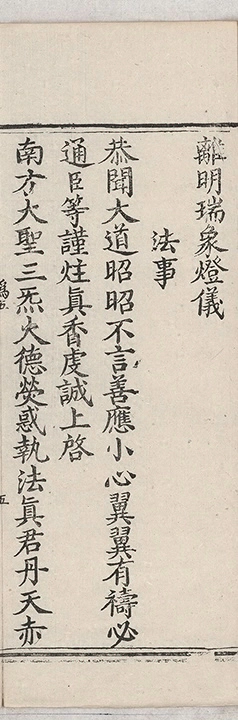 離明瑞象燈儀
法事
恭聞大道昭昭不言善應小心翼翼有禱必
通臣等謹炷眞香虔誠上啓
南方大聖三炁火德熒惑執法眞君丹天赤
五